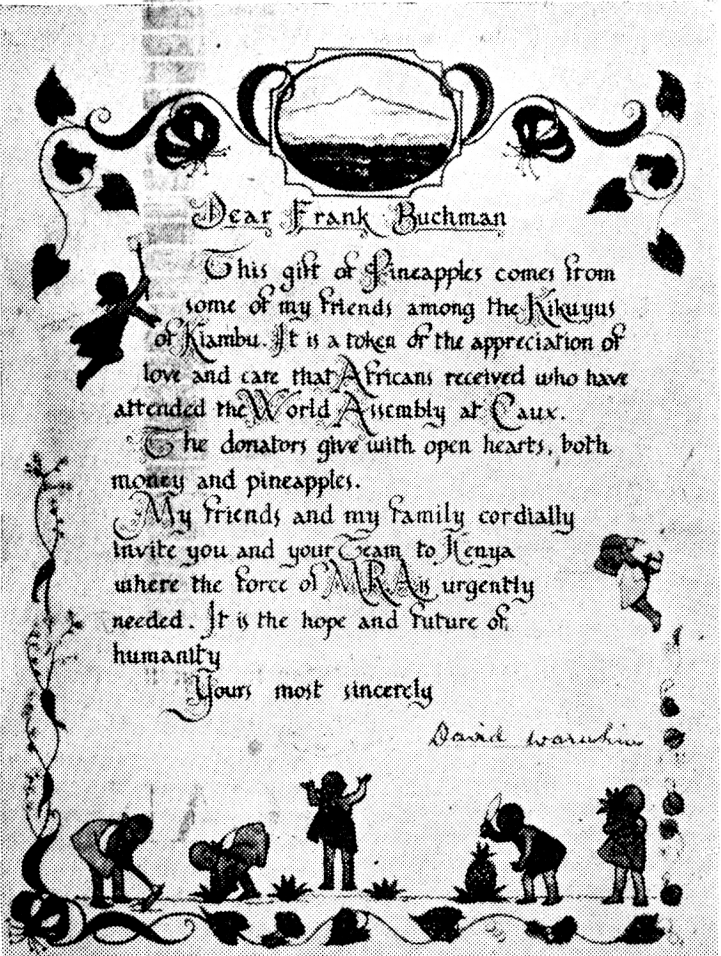 Dear Frank Buchman
This gift of Pineapples comes from
some of my friends among the Kikuyus
of Kiambu. It is a token of the appreciation of
love and care that Africans received who have
attended the World Assembly at Caux.
The donators give with open hearts, both
money and pineapples.
My friends and my family cordially
invite you and your Team to Kenya
where the force of M.R.A is urgently
needed. It is the hope and future of
humanity
Yours most sincerely
David